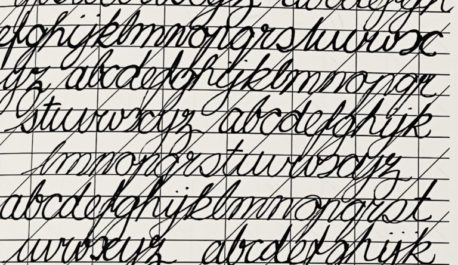 efghijklmnopqrstuvwx
yz abcdefghijklmnopqr
stuvwxyz abcdefghijk
lmnopqrstuvwxyz
abcdefghijklmnopqrst
uvwxyz abcdefghijk